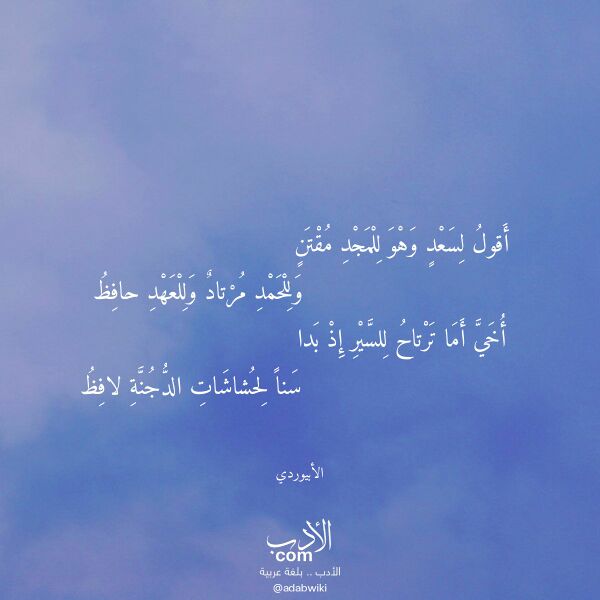 أَقولُ لِسَعْدٍ وَهْوَ لِلْمَجْدِ مُقْتَنٍ
وَلِلْحَمْدِ مُرْتادٌ وَلِلْعَهْدِ حافِظُ
أُخَيَّ أَمَا تَرْتاحُ لِلسَّيْرِ إِذْ بَدا
سَناً لِحُشاشَاتِ الدُّجُنَّةِ لافِظُ
الأبيوردي
الأدب
com
الأدب .. بلغة عربية
@adabwiki